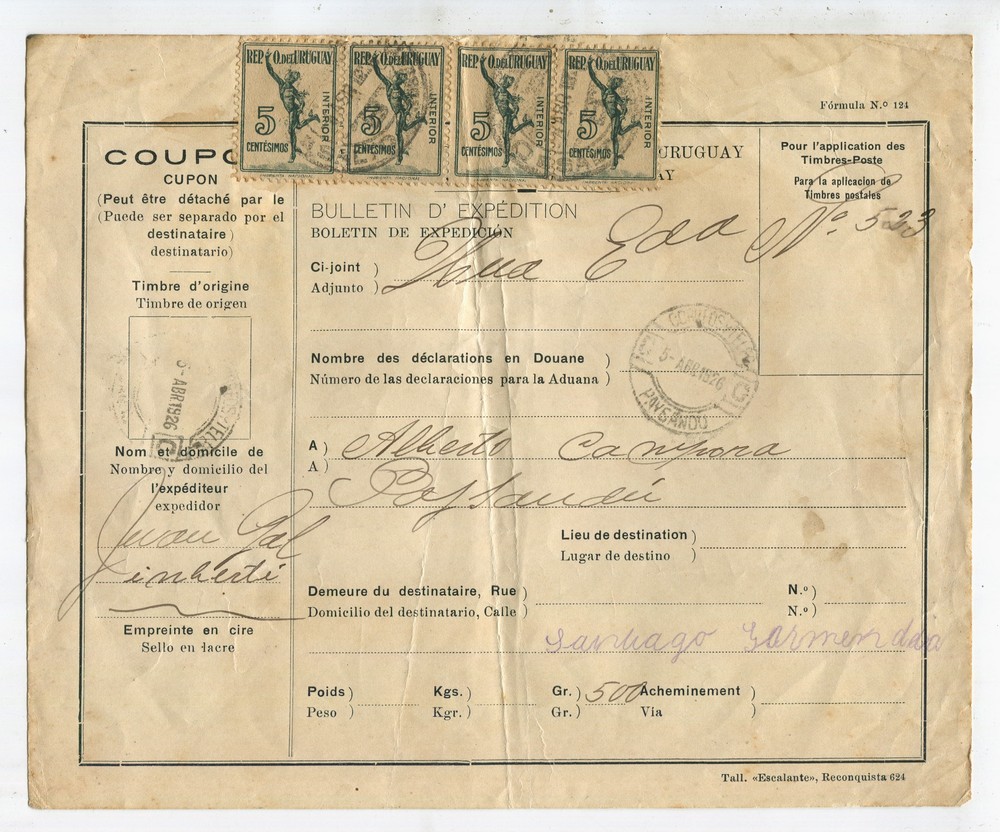 REP. O. DEL URUGUAY REP. O. DEL URUGUAY REP. O. DEL URUGUAY REP. O. DEL URUGUAY
5 INTERIOR 5 INTERIOR 5 INTERIOR 5 INTERIOR
CENTÉSIMOS CENTÉSIMOS CENTÉSIMOS CENTÉSIMOS
Fórmula N.º 124
COUPO
CUPON
(Peut être détaché par le
(Puede ser separado por el
destinataire)
destinatario)
Timbre d'origine
Timbre de origen
5- ABR 1926
Nom et domicile de
Nombre y domicilio del
l'expéditeur
expedidor
Juan Gal
inberti
Empreinte en cire
Sello en lacre
URUGUAY
AY
BULLETIN D' EXPÉDITION
BOLETIN DE EXPEDICIÓN
Ci-joint )
Adjunto )
Una Eda Nº 523
Pour l'application des
Timbres-Poste
Para la aplicacion de
Timbres postales
Nombre des déclarations en Douane )
Número de las declaraciones para la Aduana )
CORREOS
5- ABR 1926
PAYSANDU
A )
A )
Alberto Campora
Paysandú
Lieu de destination )
Lugar de destino )
Demeure du destinataire, Rue ) N.º )
Domicilio del destinatario, Calle ) N.º )
Santiago Gormendia
Poids ) Kgs. ) Gr. ) 500 Acheminement )
Peso ) Kgr. ) Gr. ) Via )
Tall. «Escalante», Reconquista 624